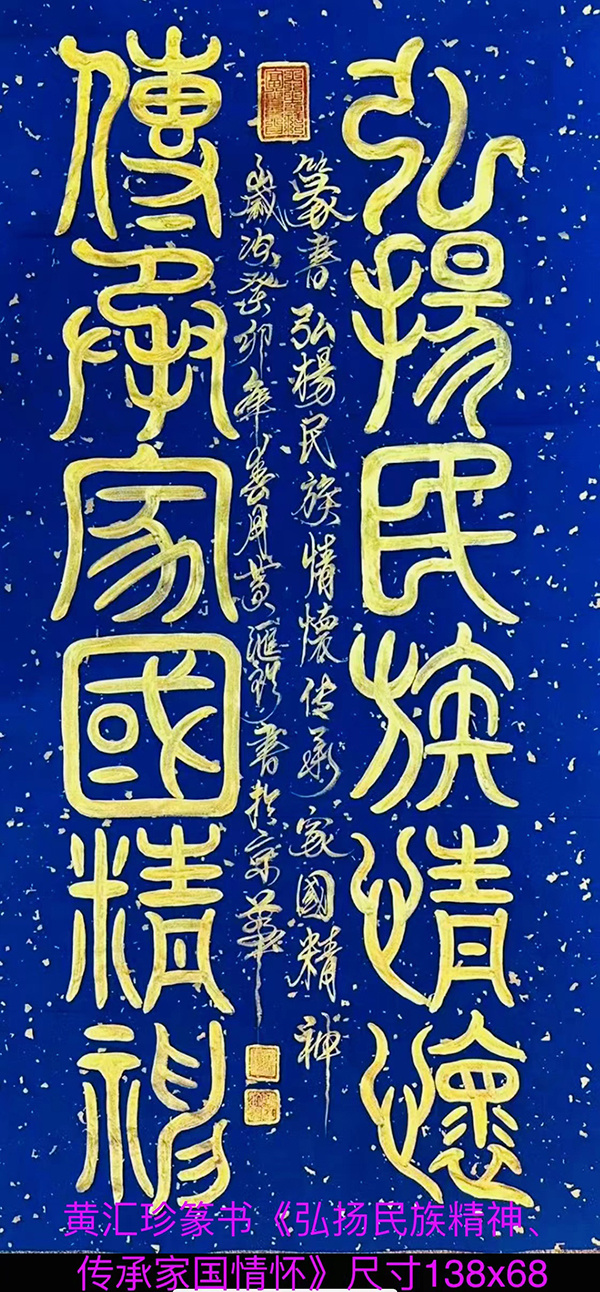 弘揚民族情懷
篆書弘楊民族情懷传承家國精神
歲次癸卯年春月黄滙珍書於京華
傳承家國精神
黄汇珍篆书《弘扬民族精神、
传承家国情怀》尺寸138x68